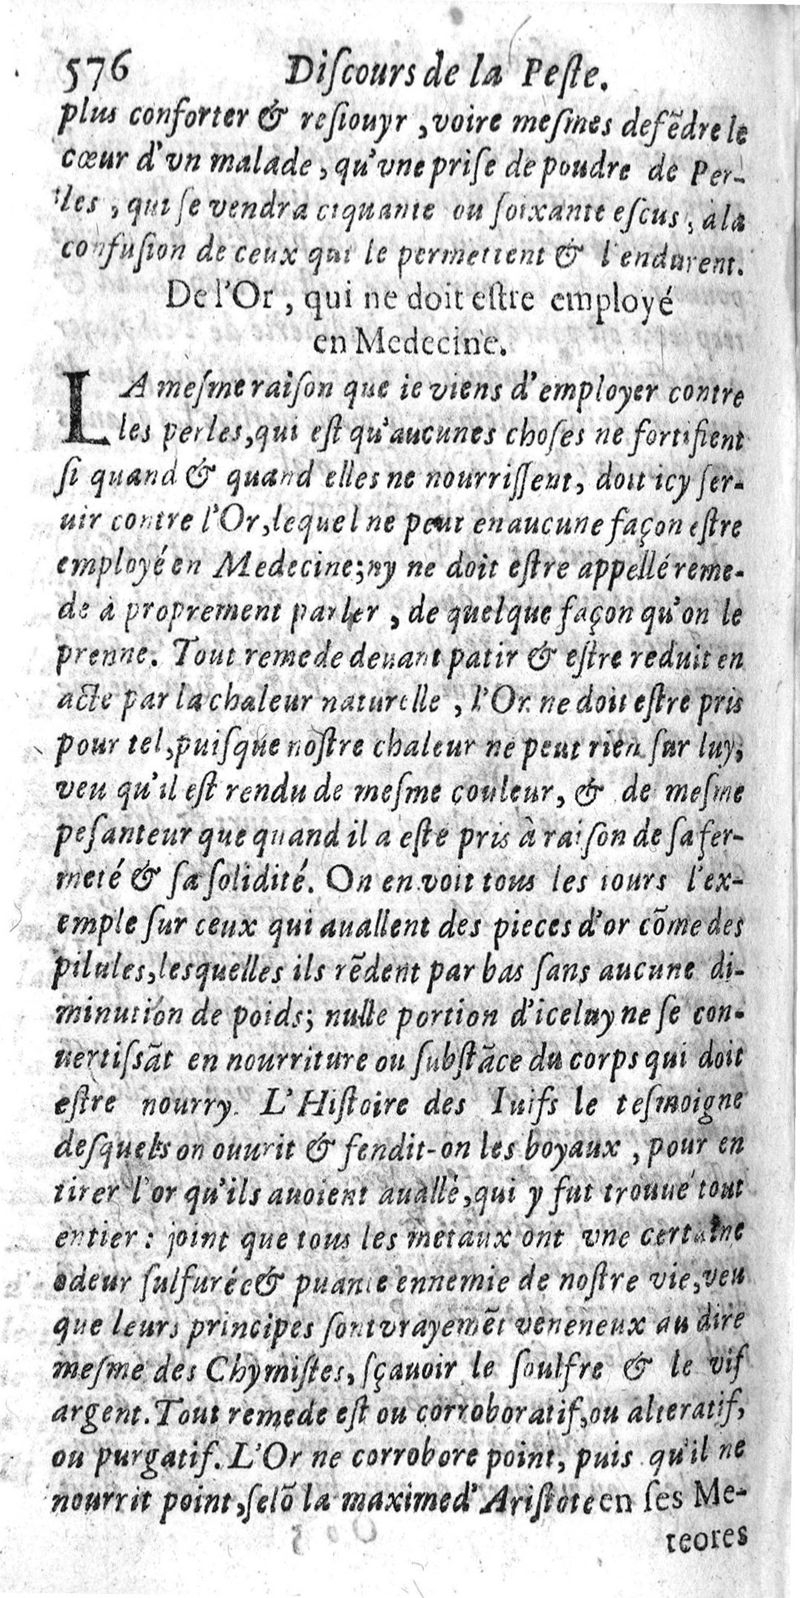 576 Diſcours de la Peſte.
plus conforter & reſiouyr, voire meſmes defẽdre le
cœur d'vn malade, qu'vne priſe de poudre de Per-
les, qui ſe vendra ciquante ou ſoixante eſcus, à la
confuſion de ceux qui le permettent & l'endurent.
De l'Or, qui ne doit eſtre employé
en Medecine.
LA meſme raiſon que ie viens d'employer contre
les perles, qui eſt qu'aucunes choſes ne fortifient
ſi quand & quand elles ne nourriſſent, doit icy ſer-
uir contre l'Or, lequel ne peut en aucune façon eſtre
employé en Medecine; ny ne doit eſtre appellé reme-
de à proprement parler, de quelque façon qu'on le
prenne. Tout remede deuant patir & eſtre reduit en
acte par la chaleur naturelle, l'Or ne doit eſtre pris
pour tel, puiſque noſtre chaleur ne peut rien ſur luy,
veu qu'il eſt rendu de meſme couleur, & de meſme
peſanteur que quand il a eſté pris à raiſon de ſa fer-
meté & ſa ſolidité. On en voit tous les iours l'ex-
emple ſur ceux qui auallent des pieces d'or cõme des
pilules, leſquelles ils rẽdent par bas ſans aucune di-
minution de poids; nulle portion d'iceluy ne ſe con-
uertiſsãt en nourriture ou ſubſtãce du corps qui doit
eſtre nourry. L'Hiſtoire des Iuifs le teſmoigne
deſquels on ouurit & fendit-on les boyaux, pour en
tirer l'or qu'ils auoient auallé, qui y fut trouué tout
entier: joint que tous les metaux ont vne certaine
odeur ſulfurée & puante ennemie de noſtre vie, veu
que leurs principes ſont vrayemẽt veneneux au dire
meſme des Chymiſtes, ſçauoir le ſoulfre & le vif
argent. Tout remede eſt ou corroboratif, ou alteratif,
ou purgatif. L'Or ne corrobore point, puis qu'il ne
nourrit point, ſelõ la maxime d'Ariſtote en ſes Me-
teores